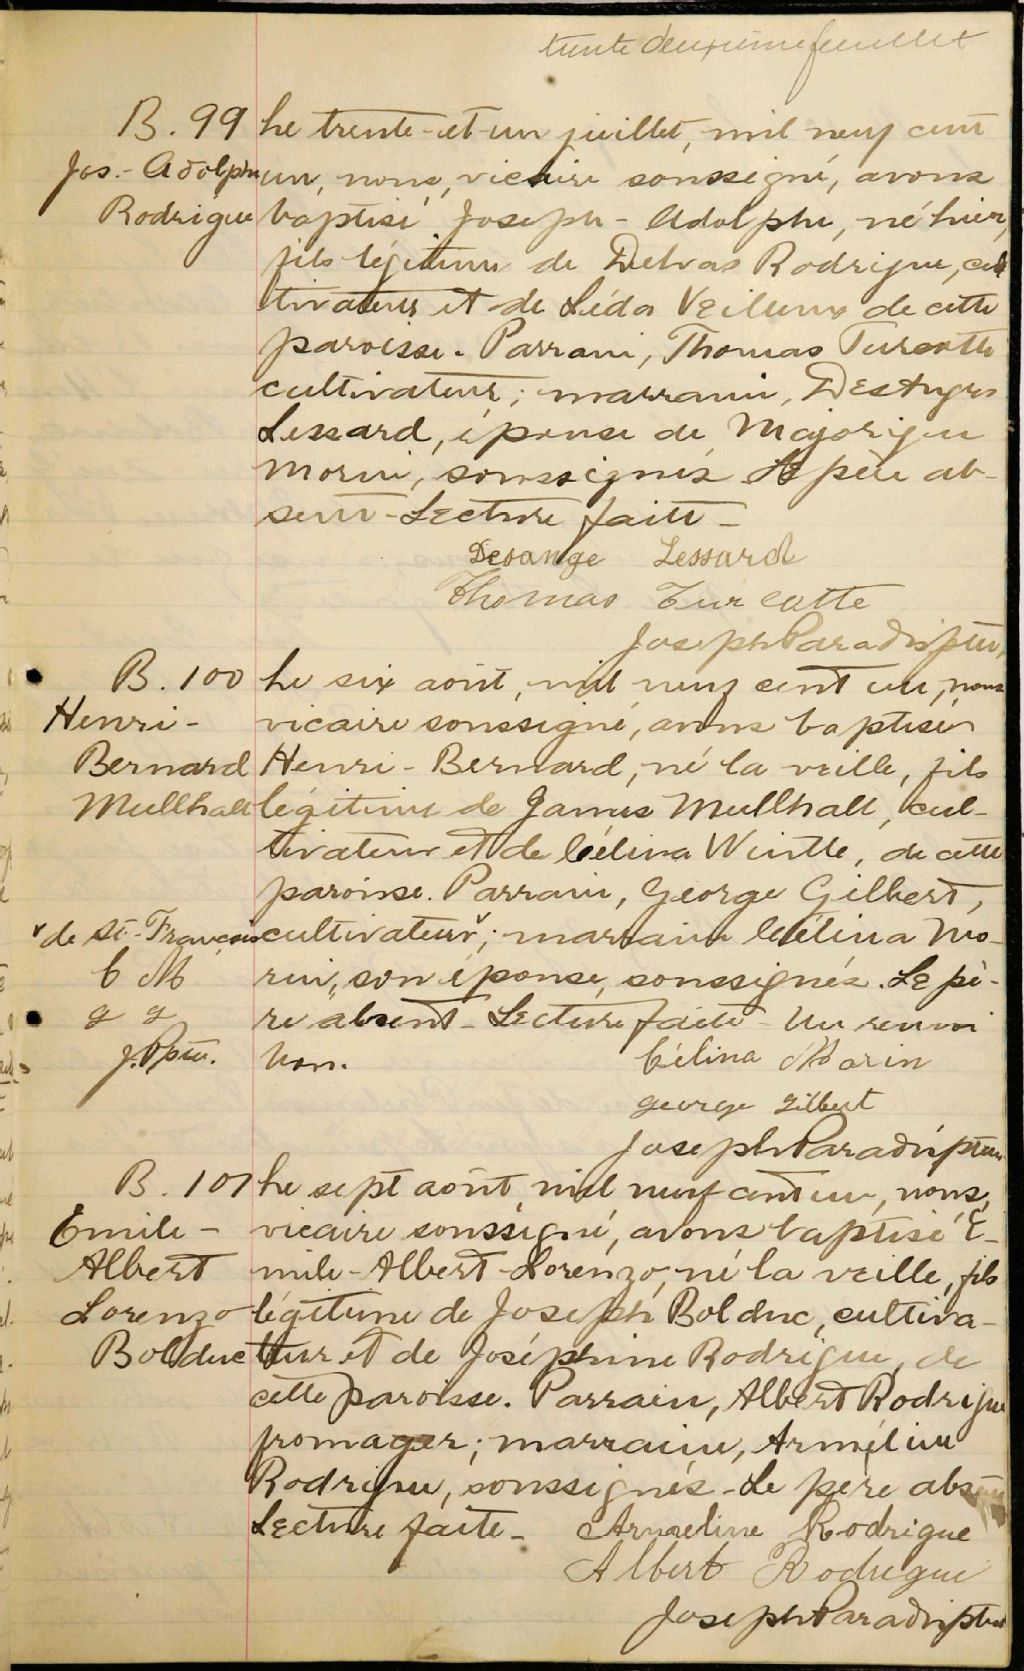 trente deuxième feuillet
B. 99 Le trente-et-un juillet, mil neuf cent
Jos.-Adolphe un, nous, vicaire soussigné, avons
Rodrigue baptisé Joseph-Adolphe, né hier,
fils légitime de Delvas Rodrigue, cul
tivateur et de Léda Veilleux de cette
paroisse. Parrain, Thomas Turcotte
cultivateur; marraine, DesAnges
Lessard, épouse de Majorique
Morin, soussignés Le père ab-
sent - Lecture faite -
Desange Lessard
Thomas Turcotte
Joseph Paradis ptre,
B. 100 Le six août, mil neuf cent un, nous
Henri- vicaire soussigné, avons baptisé
Bernard Henri-Bernard, né la veille, fils
Mullhall légitime de James Mullhall, cul-
tivateur et de Célina Wintle, de cette
paroisse. Parrain, George Gilbert,
v de St-François cultivateur v; marraine Célina Mo-
C M rin, son épouse, soussignés. Le pè-
g g re absent - Lecture faite - Un renvoi
J.P ptre. bon. Célina Morin
george gilbert
Joseph Paradis ptre
B. 101 Le sept août, mil neuf cent un, nous,
Emile- vicaire soussigné, avons baptisé É-
Albert mile-Albert-Lorenzo, né la veille, fils
Lorenzo légitime de Joseph Bolduc, cultiva-
Bolduc teur et de Joséphine Rodrigue, de
cette paroisse. Parrain, Albert Rodrigue
fromager; marraine, Arméline
Rodrigue, soussignés - Le père absent
Lecture faite - Armeline Rodrigue
Albert Rodrigue
Joseph Paradis ptre